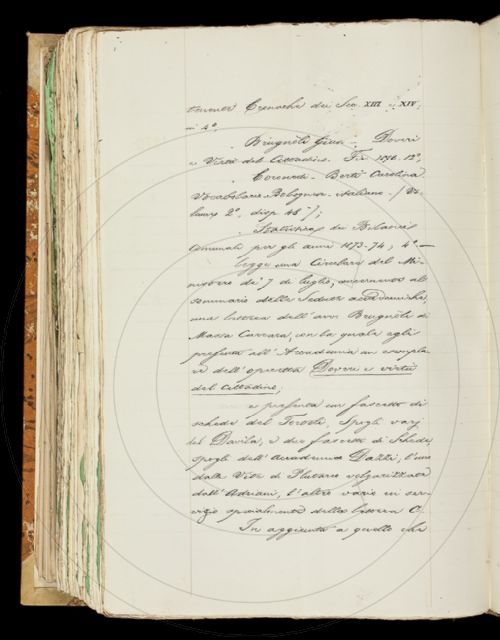 tenente Cronache dei Sec. XIII e XIV,
in 4º,
Brugnoli Gius. - Doveri
e Virtù del Cittadino. Fir. 1876. 12º,
Coronedi-Berti Carolina
Vocabolario Bolognese-italiano - (Vo-
lume 2º, disp. 48ª);
Statistica dei Bilanci
Comunali per gli anni 1873-74, 4º. —
Legge una Circolare del Mi-
nistro de' 7 di luglio, intorno al
sommario delle Sedute accademiche,
una lettera dell' avv. Brugnoli di
Massa Carrara, con la quale egli
presenta all' Accademia un esempla-
re dell' operetta Doveri e virtù
del Cittadino;
e presenta un fascetto di
schede del Tortoli, Spogli varj
del Davila, e due fascetti di Schede,
spogli dell' Accademico Dazzi, l'uno
dalle Vite di Plutarco volgarizzate
dall' Adriani, l'altro vario in ser-
vigio specialmente della lettera C.
In aggiunta a quello che